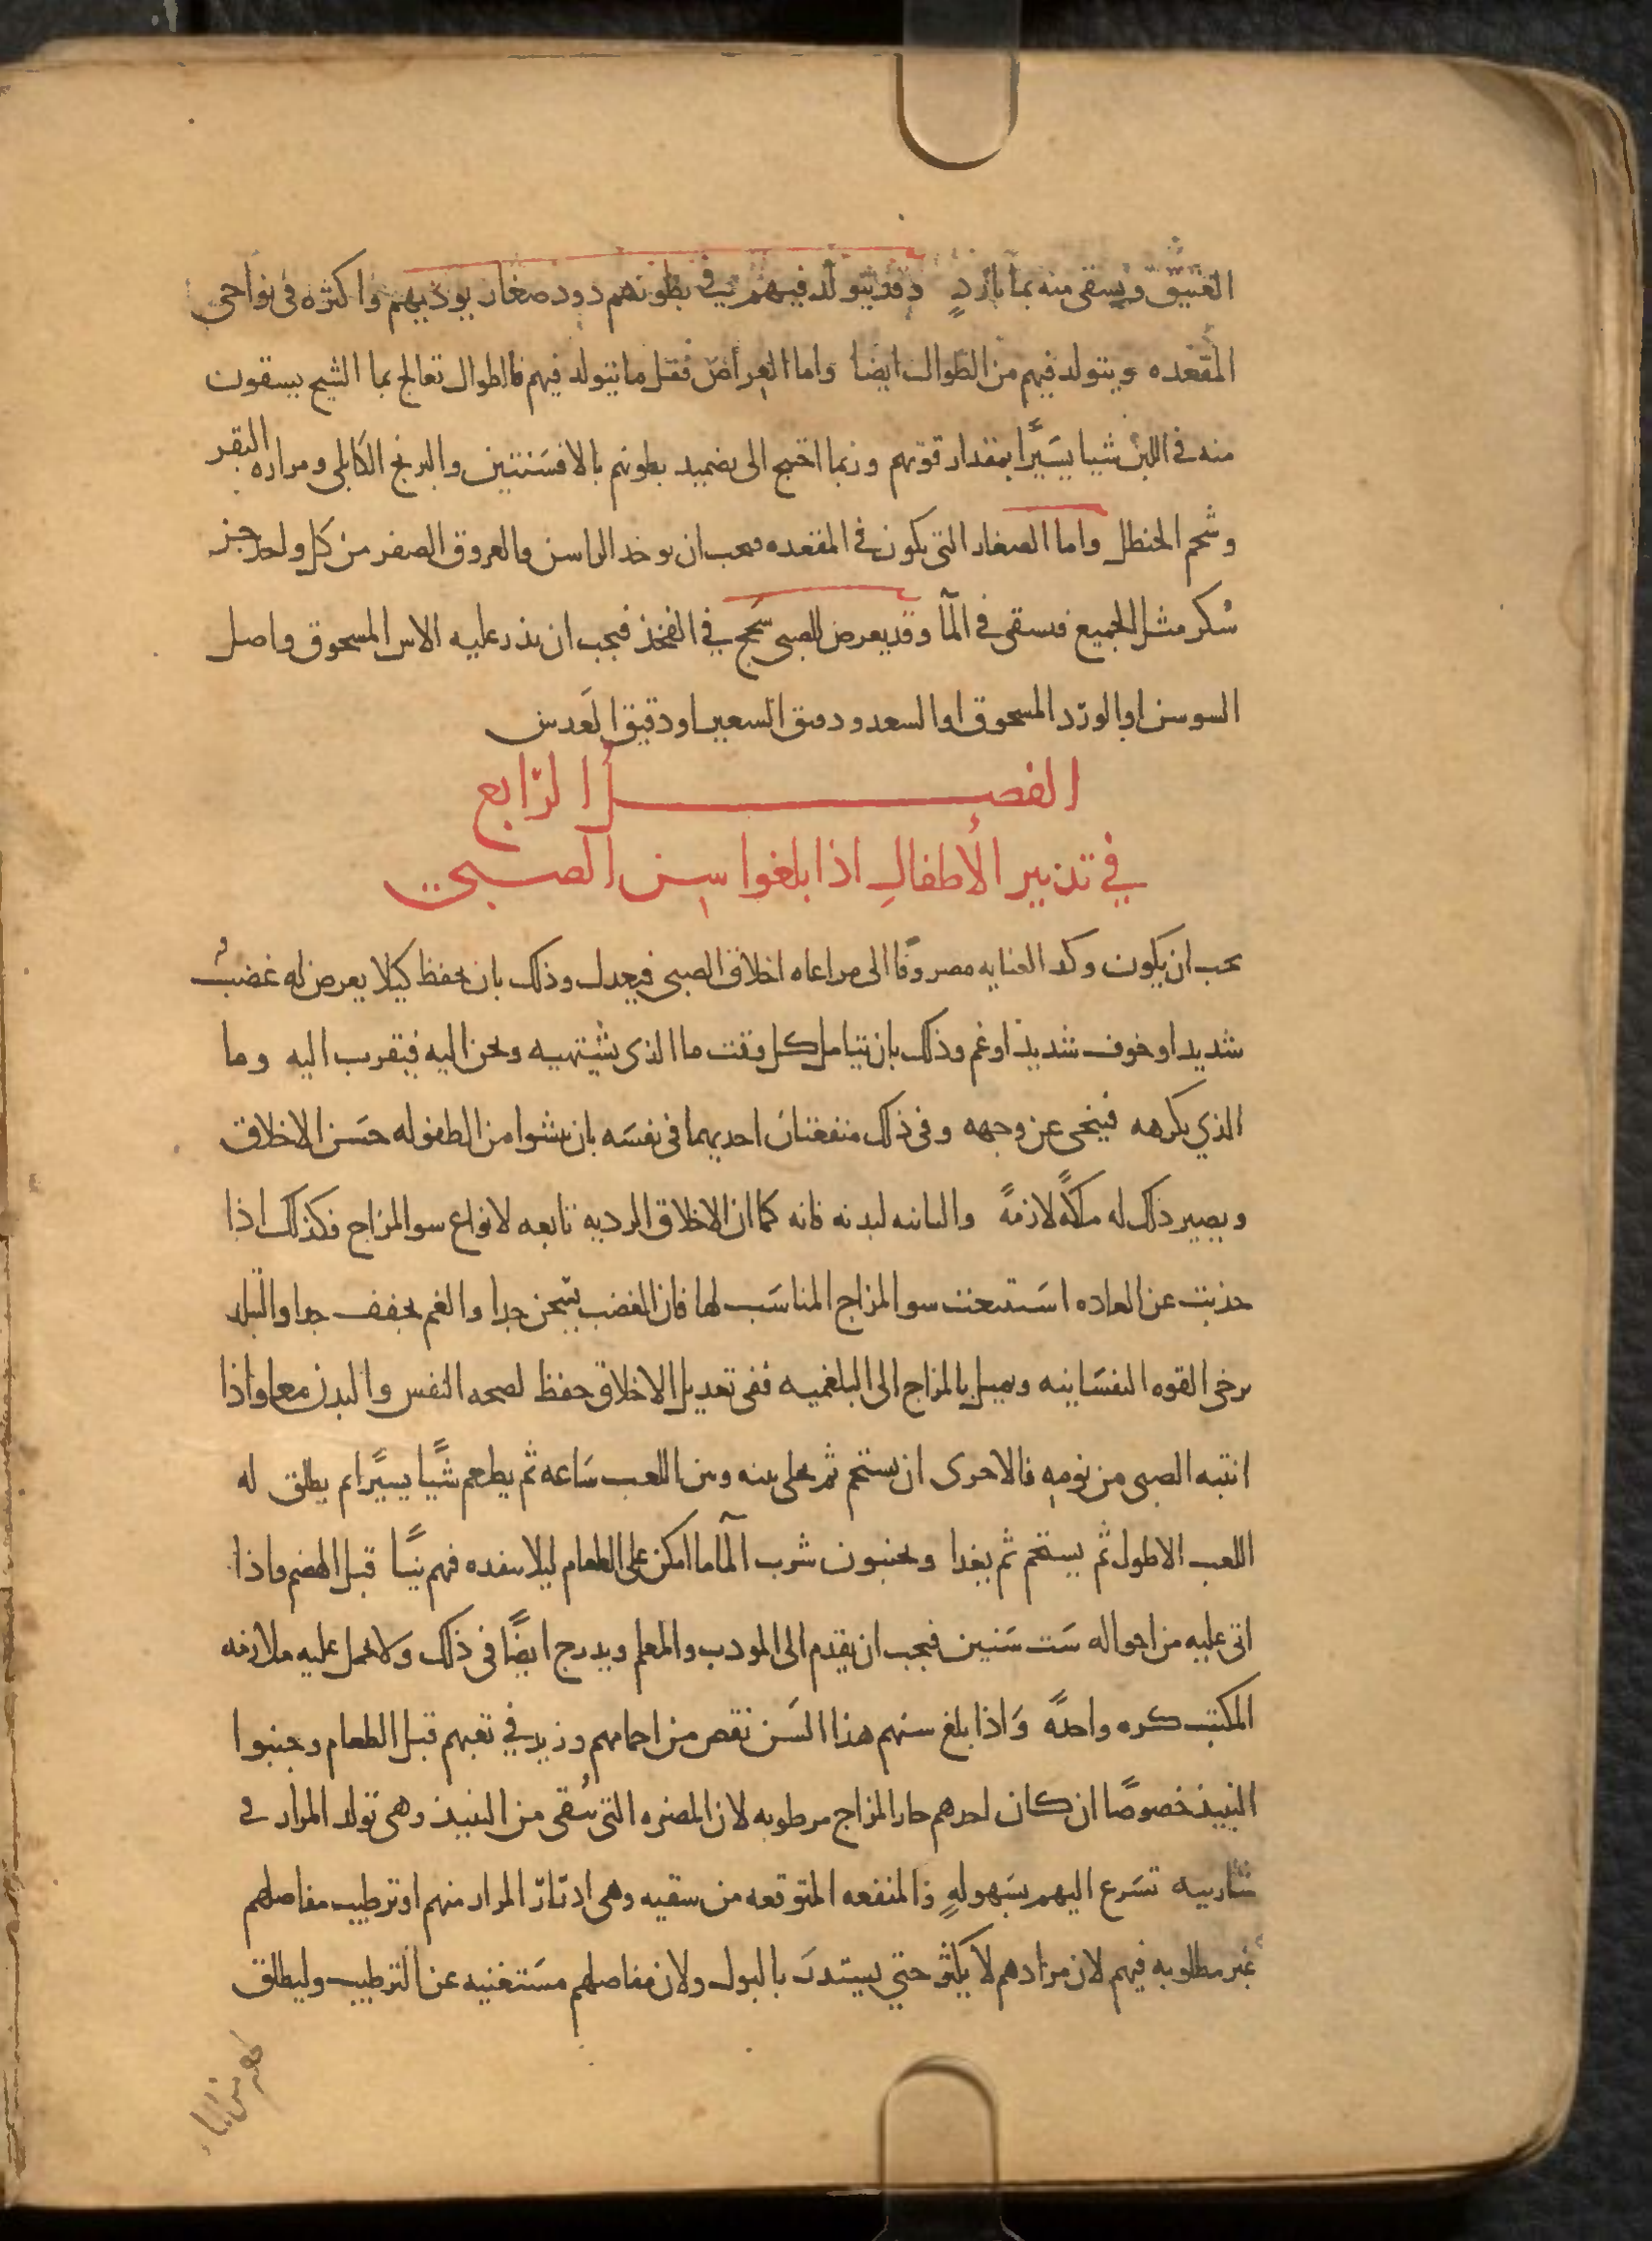 العتيق ويسقى منه بما بارد وقد يتولد فيهم في بطونهم دود صغار يوذيهم واكثره في نواحي
المقعده ويتولد فيهم من الطوال ايضا واما العراض فقل ما يتولد فيهم فالطوال تعالج بما الشيح يسقون
منه في اللبن شيا يسيرًا بمقدار قوتهم وربما احتيج الى تضميد بطونهم بالافسنتين والبرنج الكابلي ومراره البقر
وشحم الحنظل واما الصغار التي يكون في المقعده فيجب ان يوخد الراسن والعروق الصفر من كل واحد جز
سُكر مثل الجميع فيسقى في المآ وقد يعرض للصبي سَحج في الفخذ فيجب ان يذر عليه الاس المسحوق واصل
السوسن او الورد المسحوق او السعد ودقيق الشعير او دقيق العَدس
الفصل الرابع
في تدبير الأطفالِ اذا بلغوا سِن الصبي
يجب ان يكون وكد العنايه مصروفًا الى مراعاه اخلاق الصبي فيعدل وذلك بان يحفظ كيلا يعرض له غضبٌ
شديد او خوف شديد او غم وذلك بان يتامل كل وقت ما الذي يشتهيه ويحن اليه فيقرب اليه وما
الذي يكرهه فينحى عن وجهه وفي ذلك منفعتان احديهما في نفسَه بان ينشوا من الطفوله حسَن الاخلاق
ويصير ذلك له ملكةً لازمةً والثانيه لبدنه فانه كما ان الاخلاق الرديه تابعه لانواع سو المزاج فكذلك اذا
حدثت عن العاده استتبعت سو المزاج المناسَب لها فان الغضب يسخن جدا والغم يجفف جدا والتبلد
يرخي القوه النفسَانيه ويميل بالمزاج الى البلغميه ففي تعديل الاخلاق حفظ لصحه النفس والبدن معا واذا
انتبه الصبي من نومِه فالاحرى ان يستحم ثم يخلى بينه وبين اللعب سَاعه ثم يطعم شيًا يسيًرا ثم يطلق له
اللعب الاطول ثم يستحم ثم يغدا ويجنبون شرب المآ ما امكن على الطعام ليلا ينفده فيهم نيًا قبل الهضم واذا
اتى عليه من احواله سَت سَنين فيجب ان يقدم الى المودب والمعلم ويدرج ايضًا في ذلك ولا يحمل عليه ملازمه
المكتب كره واحدةً وَاذا بلغ سنهم هذا السَن نقص من احمامهم وزيد في تعبهم قبل الطعام وجنبوا
النبيذ خصوصًا ان كان احدهم حار المزاج مرطوبه لان المضره التي تتُقى من النبيذ وهي تولد المرار في
شاربيه تسَرع اليهم بسَهولهٍ والمنفعه المتوقعه من سقيه وهي ادرار المرار منهم او ترطيب مفاصلهم
غير مطلوبه فيهم لان مرارهم لا يكثر حتي يستدرَ بالبول ولان مفاصلهم مسَتغنيه عن الترطيب وليطلق